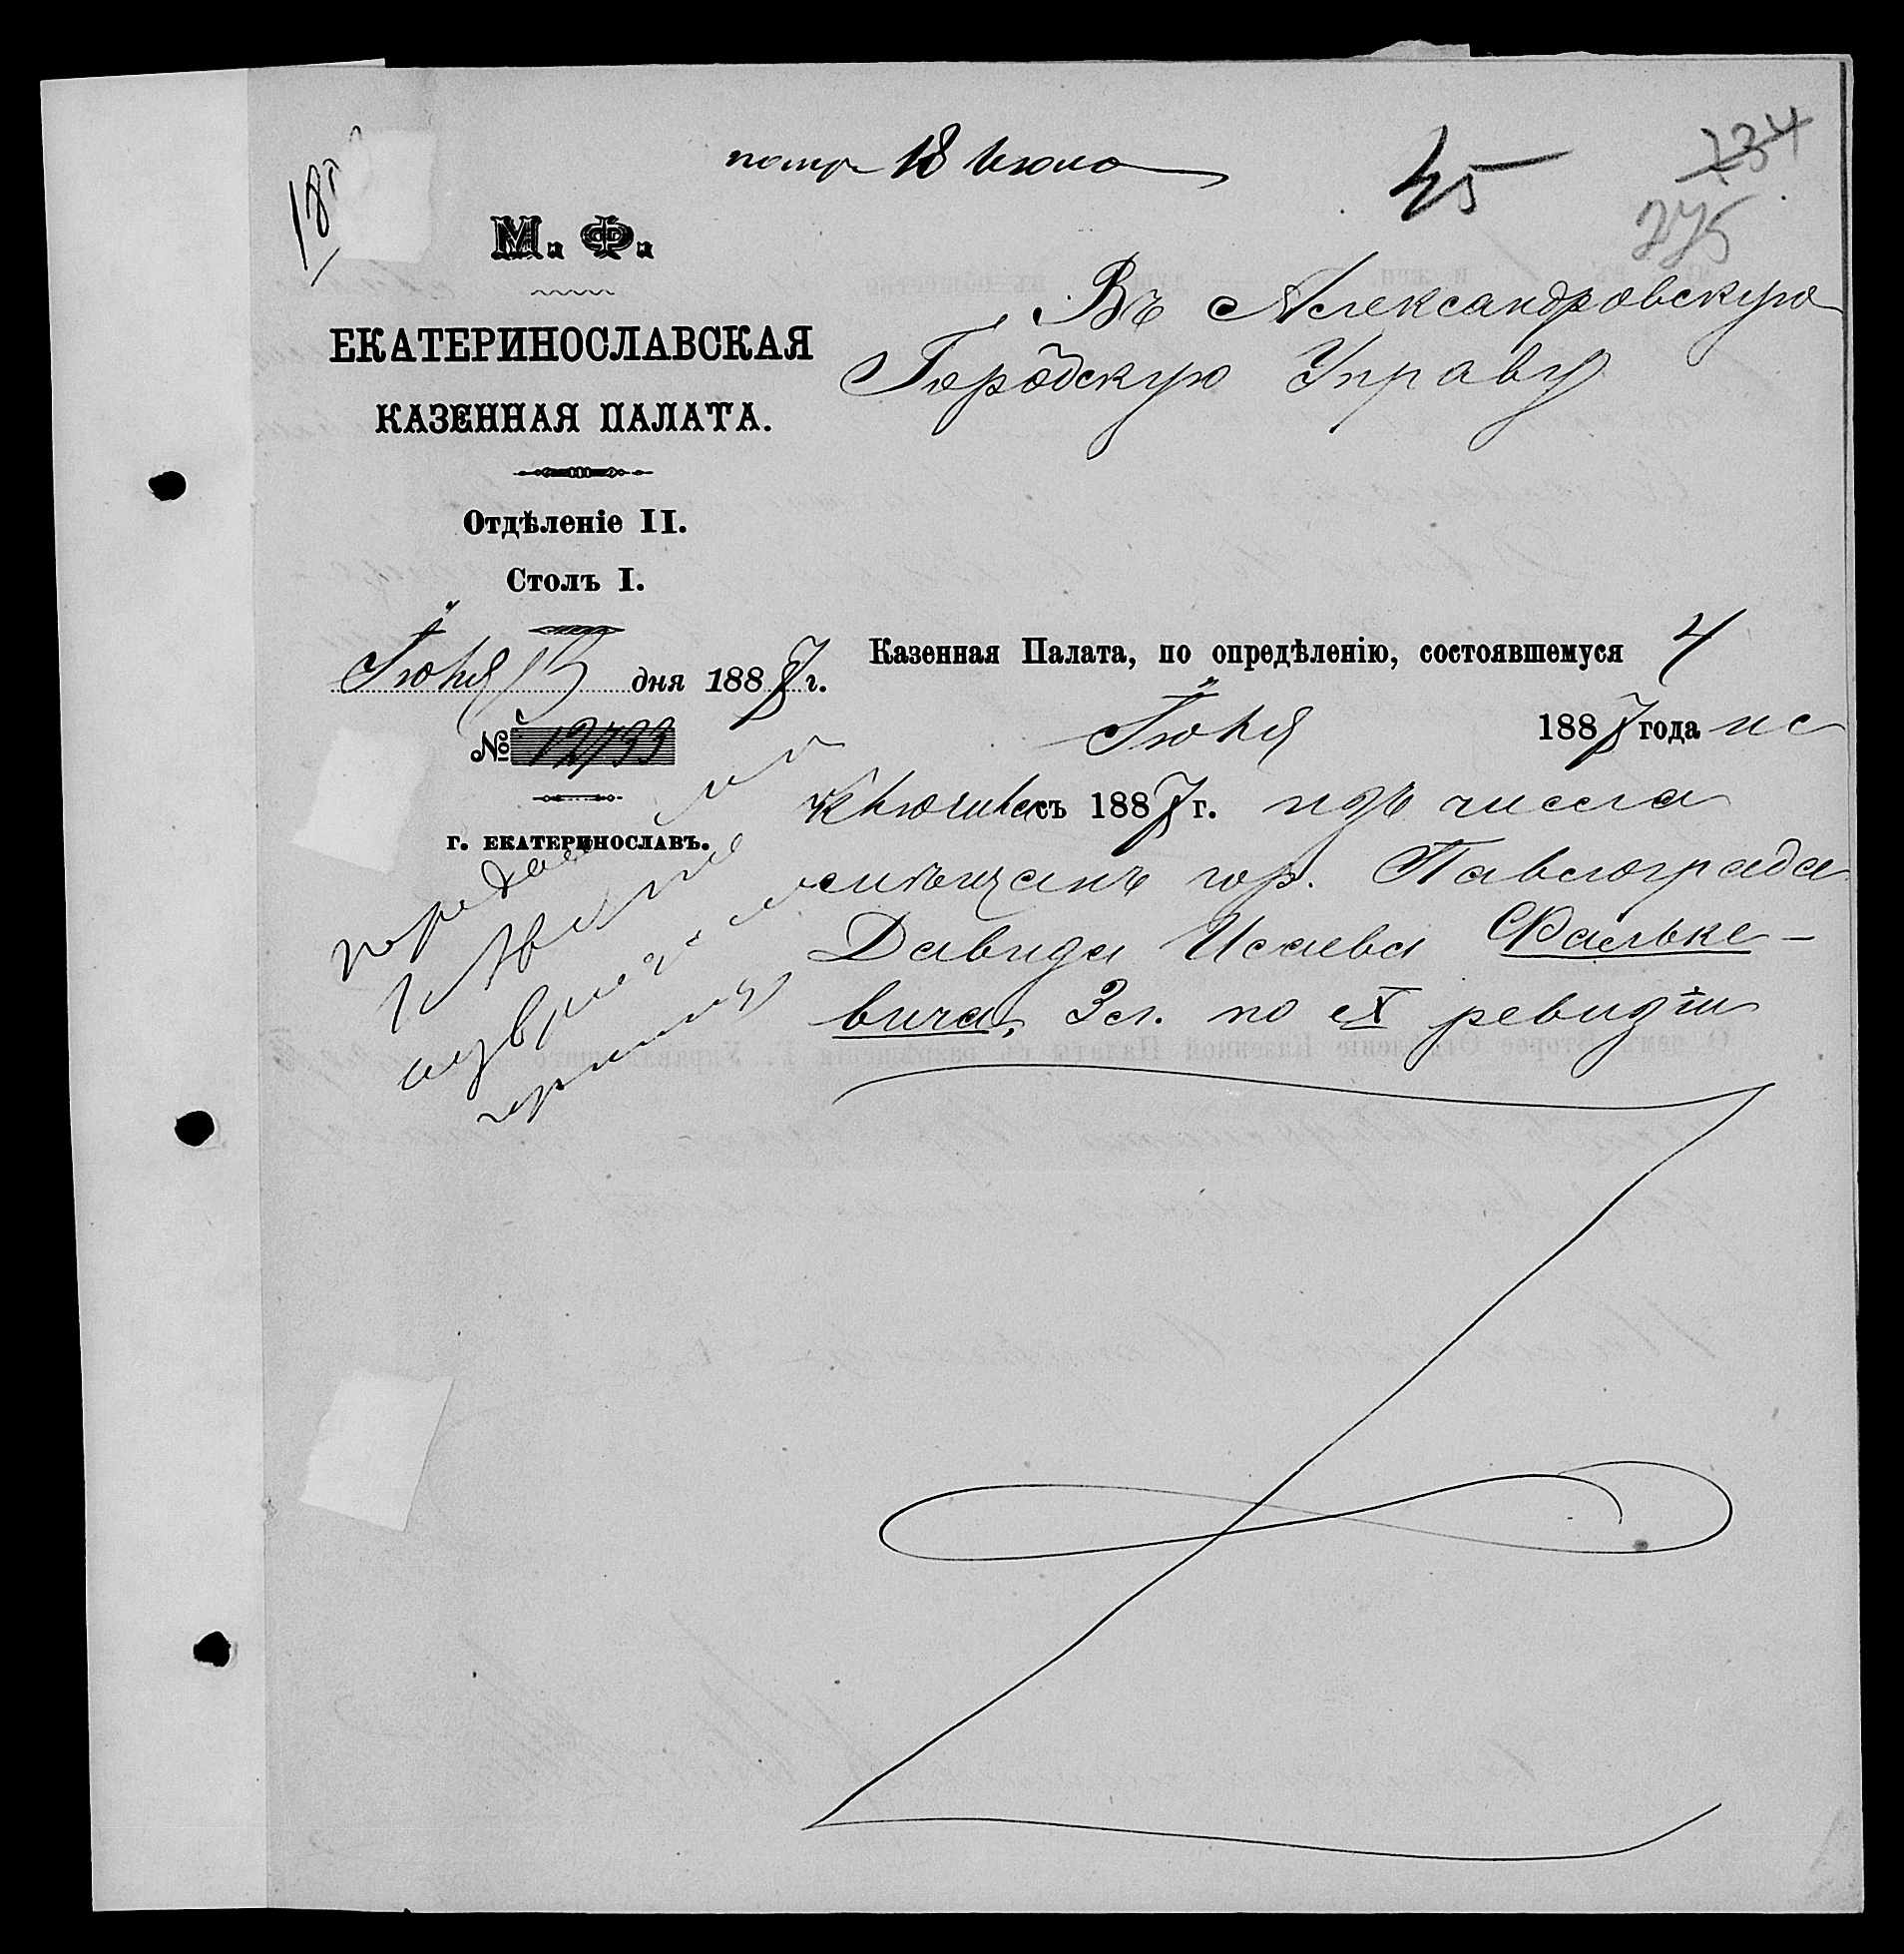 18 Июня
45
234
275
М. Ф.
ЕКАТЕРИНОСЛАВСКАЯ
КАЗЕННАЯ ПАЛАТА.
Отдѣленіе II.
Столъ I.
Іюня 15 дня 1887 г.
№ 12733
г. ЕКАТЕРИНОСЛАВЪ.
Въ Александровскую
Городскую Управу
Казенная Палата, по опредѣленію, состоявшемуся 4
Іюня 1887 года ис
ключила съ 1887 г. изъ числа
мѣщанъ гор. Павлограда
Давида Исаева Фальке-
вича, 3 сл. по X ревизіи